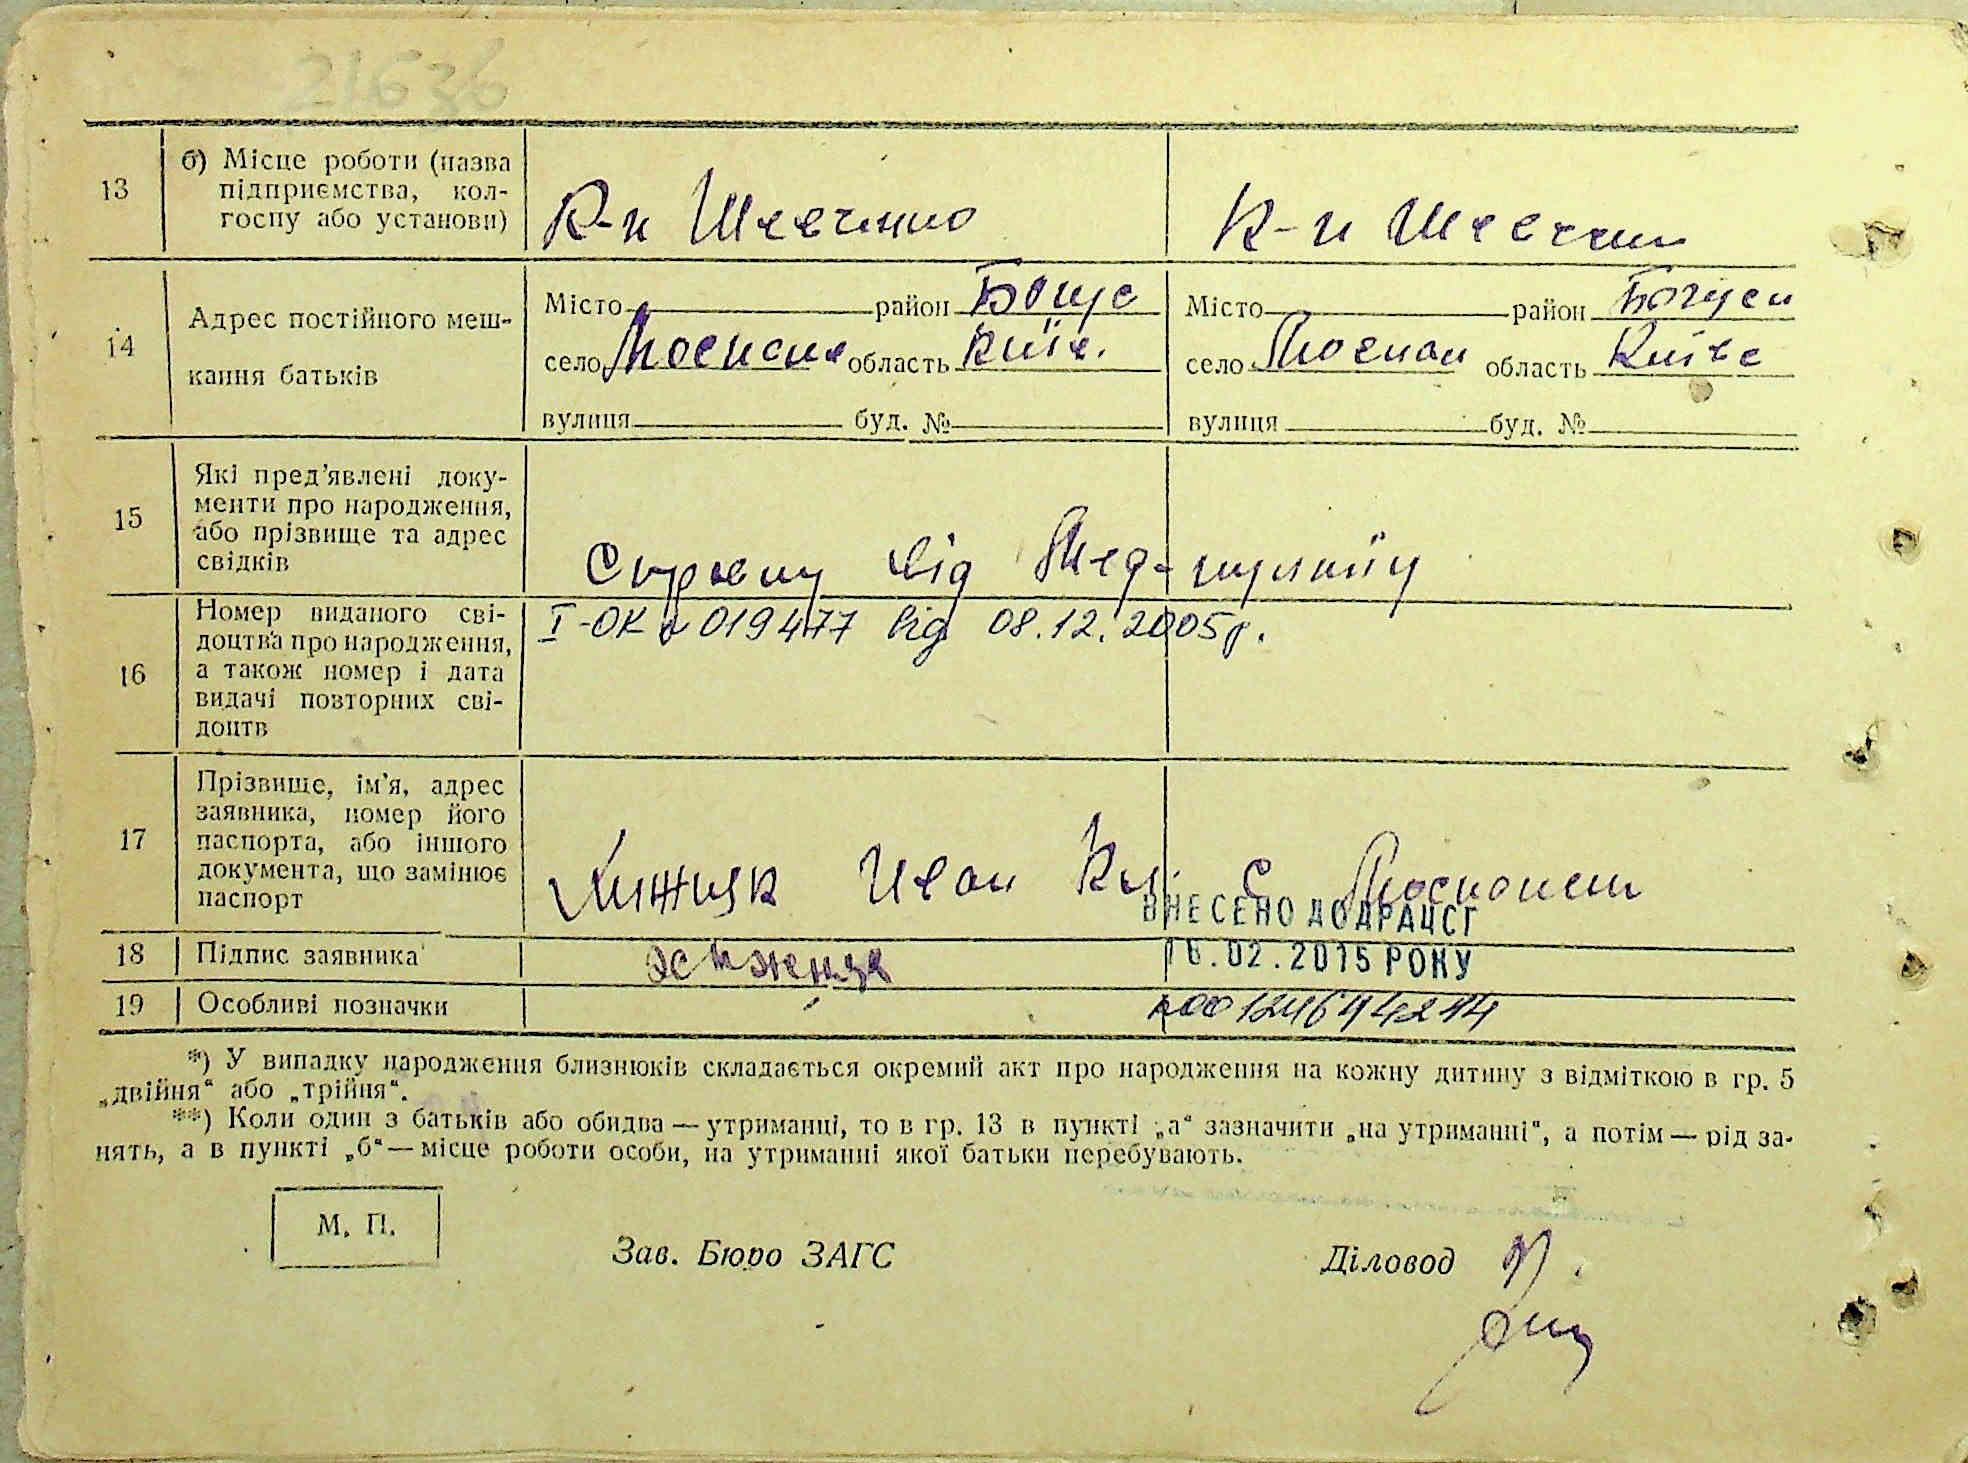 21636
13
б) Місце роботи (назва
підприємства, кол-
госпу або установи)
К-п Шевченко
К-п Шевченк
14
Адрес постійного меш-
кання батьків
Місто район Богус
село область Київ.
вулиця буд. №
Місто район Богусл
село область Київс
вулиця буд. №
15
Які пред’явлені доку-
менти про народження,
або прізвище та адрес
свідків
від Мед-пункту
16
Номер виданого сві-
доцтва про народження,
а також номер і дата
видачі повторних сві-
доцтв
I-ОК № 019477 від 08.12.2005р.
17
Прізвище, ім’я, адрес
заявника, номер його
паспорта, або іншого
документа, що замінює
паспорт
Иван с.
ВНЕСЕНО ДО ДРАЦСГ
18
Підпис заявника
16.02.2015 РОКУ
19
Особливі позначки
*) У випадку народження близнюків складається окремий акт про народження на кожну дитину з відміткою в гр. 5
„двійня“ або „трійня“.
**) Коли один з батьків або обидва — утриманці, то в гр. 13 в пункті „а“ зазначити „на утриманні“, а потім — рід за-
нять, а в пункті „б“ — місце роботи особи, на утриманні якої батьки перебувають.
М. П.
Зав. Бюро ЗАГС
Діловод